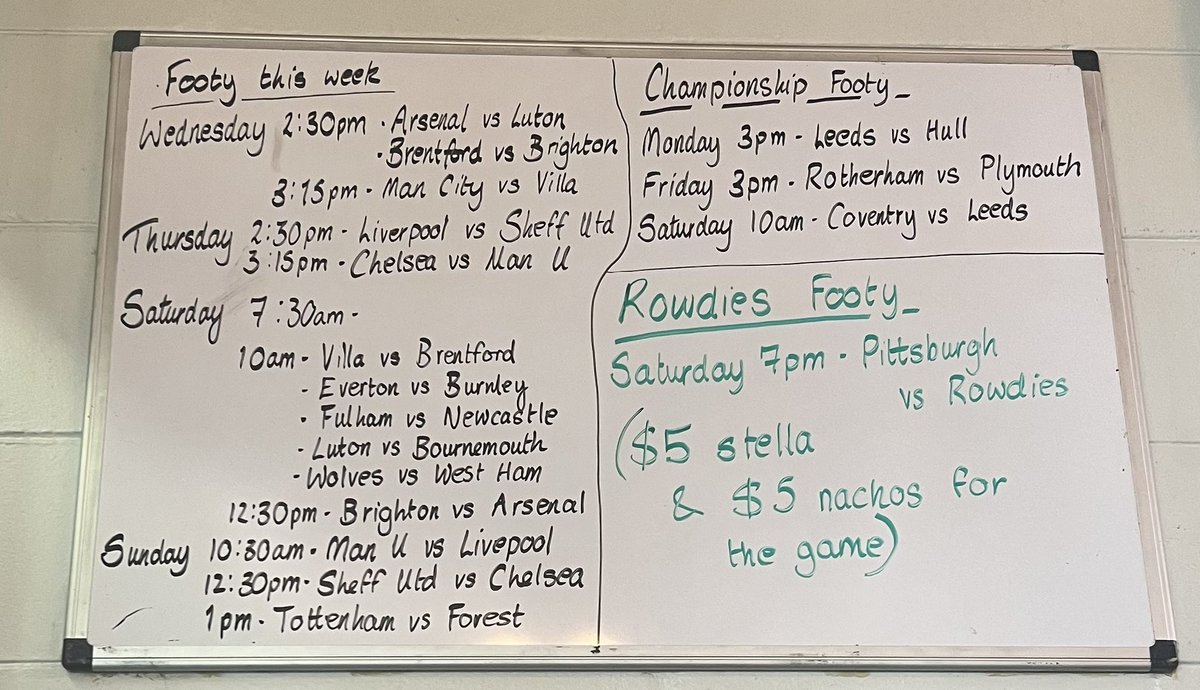 Footy this week
Wednesday 2:30pm · Arsenal vs Luton
· Brentford vs Brighton
3:15pm - Man City vs Villa
Thursday 2:30pm - Liverpool vs Sheff Utd
3:15pm - Chelsea vs Man U
Saturday 7:30am -
10am - Villa vs Brentford
- Everton vs Burnley
- Fulham vs Newcastle
- Luton vs Bournemouth
- Wolves vs West Ham
12:30pm - Brighton vs Arsenal
Sunday 10:30am - Man U vs Livepool
12:30pm - Sheff Utd vs Chelsea
1pm - Tottenham vs Forest
Championship Footy_
Monday 3pm - Leeds vs Hull
Friday 3pm - Rotherham vs Plymouth
Saturday 10am - Coventry vs Leeds
Rowdies Footy_
Saturday 7pm - Pittsburgh
vs Rowdies
($5 stella
& $5 nachos for
the game)